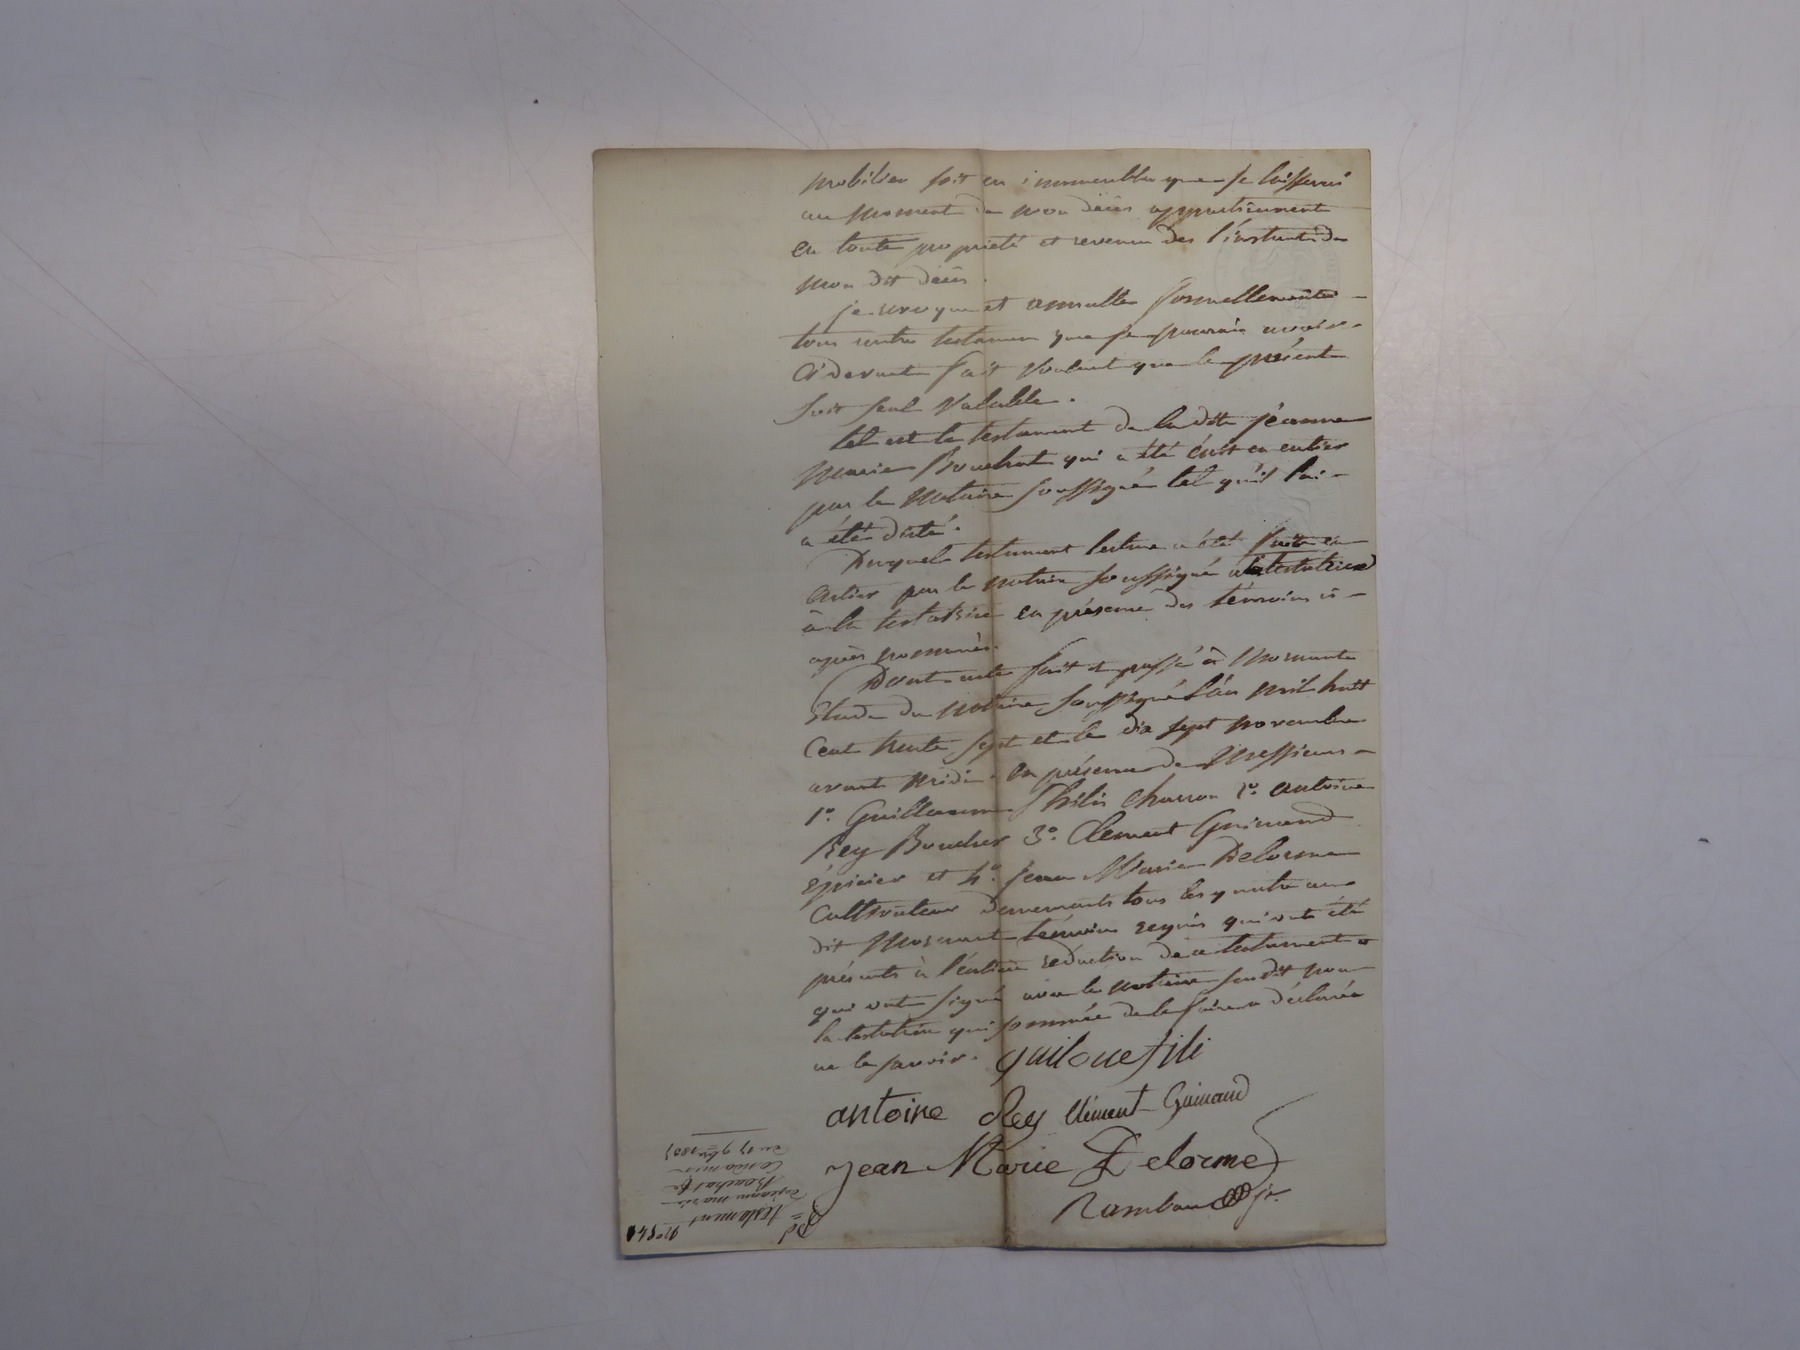 mobilier soit en immeubles que je laisserai
au moment de mon décès appartiennent
en toute propriété et revenu des l'instant de
mon dit décès.
je revoque et annulle formellement
tous autres testamen que je pourrais avoir
ci devant fait voulant que le présent
soit seul valable.
tel est le testament de la dite jéanne
marie Bouchat qui a été écrit en entier
par le notaire soussigné tel qu'il lui
a été dicté.
Duquel testament lecture a été faite en
entier par le notaire soussigné
à la testatrice en présence des témoins ci-
après nommés.
Dont acte fait et passé à Mornant
Etude du notaire soussigné l'an mil huit
cent trente sept et le dix sept novembre
avant midi en présence de Messieurs
1° Guillaume Philis charron 2° antoine
Rey Boucher 3° Clement Guinand
épicier et 4° Jean Marie Delorme
cultivateur demeurants tous les quatre au
dit Mornant témoins requis qui ont été
présents à l'entière rédaction de ce testament et
qui ont signé avec le notaire susdit non
la testatrice qui sommée de le faire a déclarée
ne le savoir.
antoine Rey Clément Guinand
Jean Marie Delorme
testament